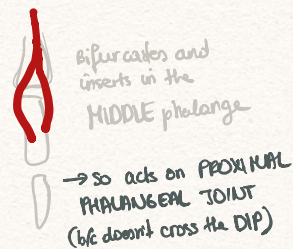 Bifurcates and
inserts in the
MIDDLE phalange
→ so acts on PROXIMAL
PHALANGEAL JOINT
(b/c doesn't cross the DIP)